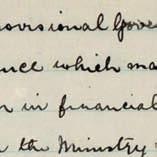 ovisional Gove
nce which ma
r in financial
the Ministry